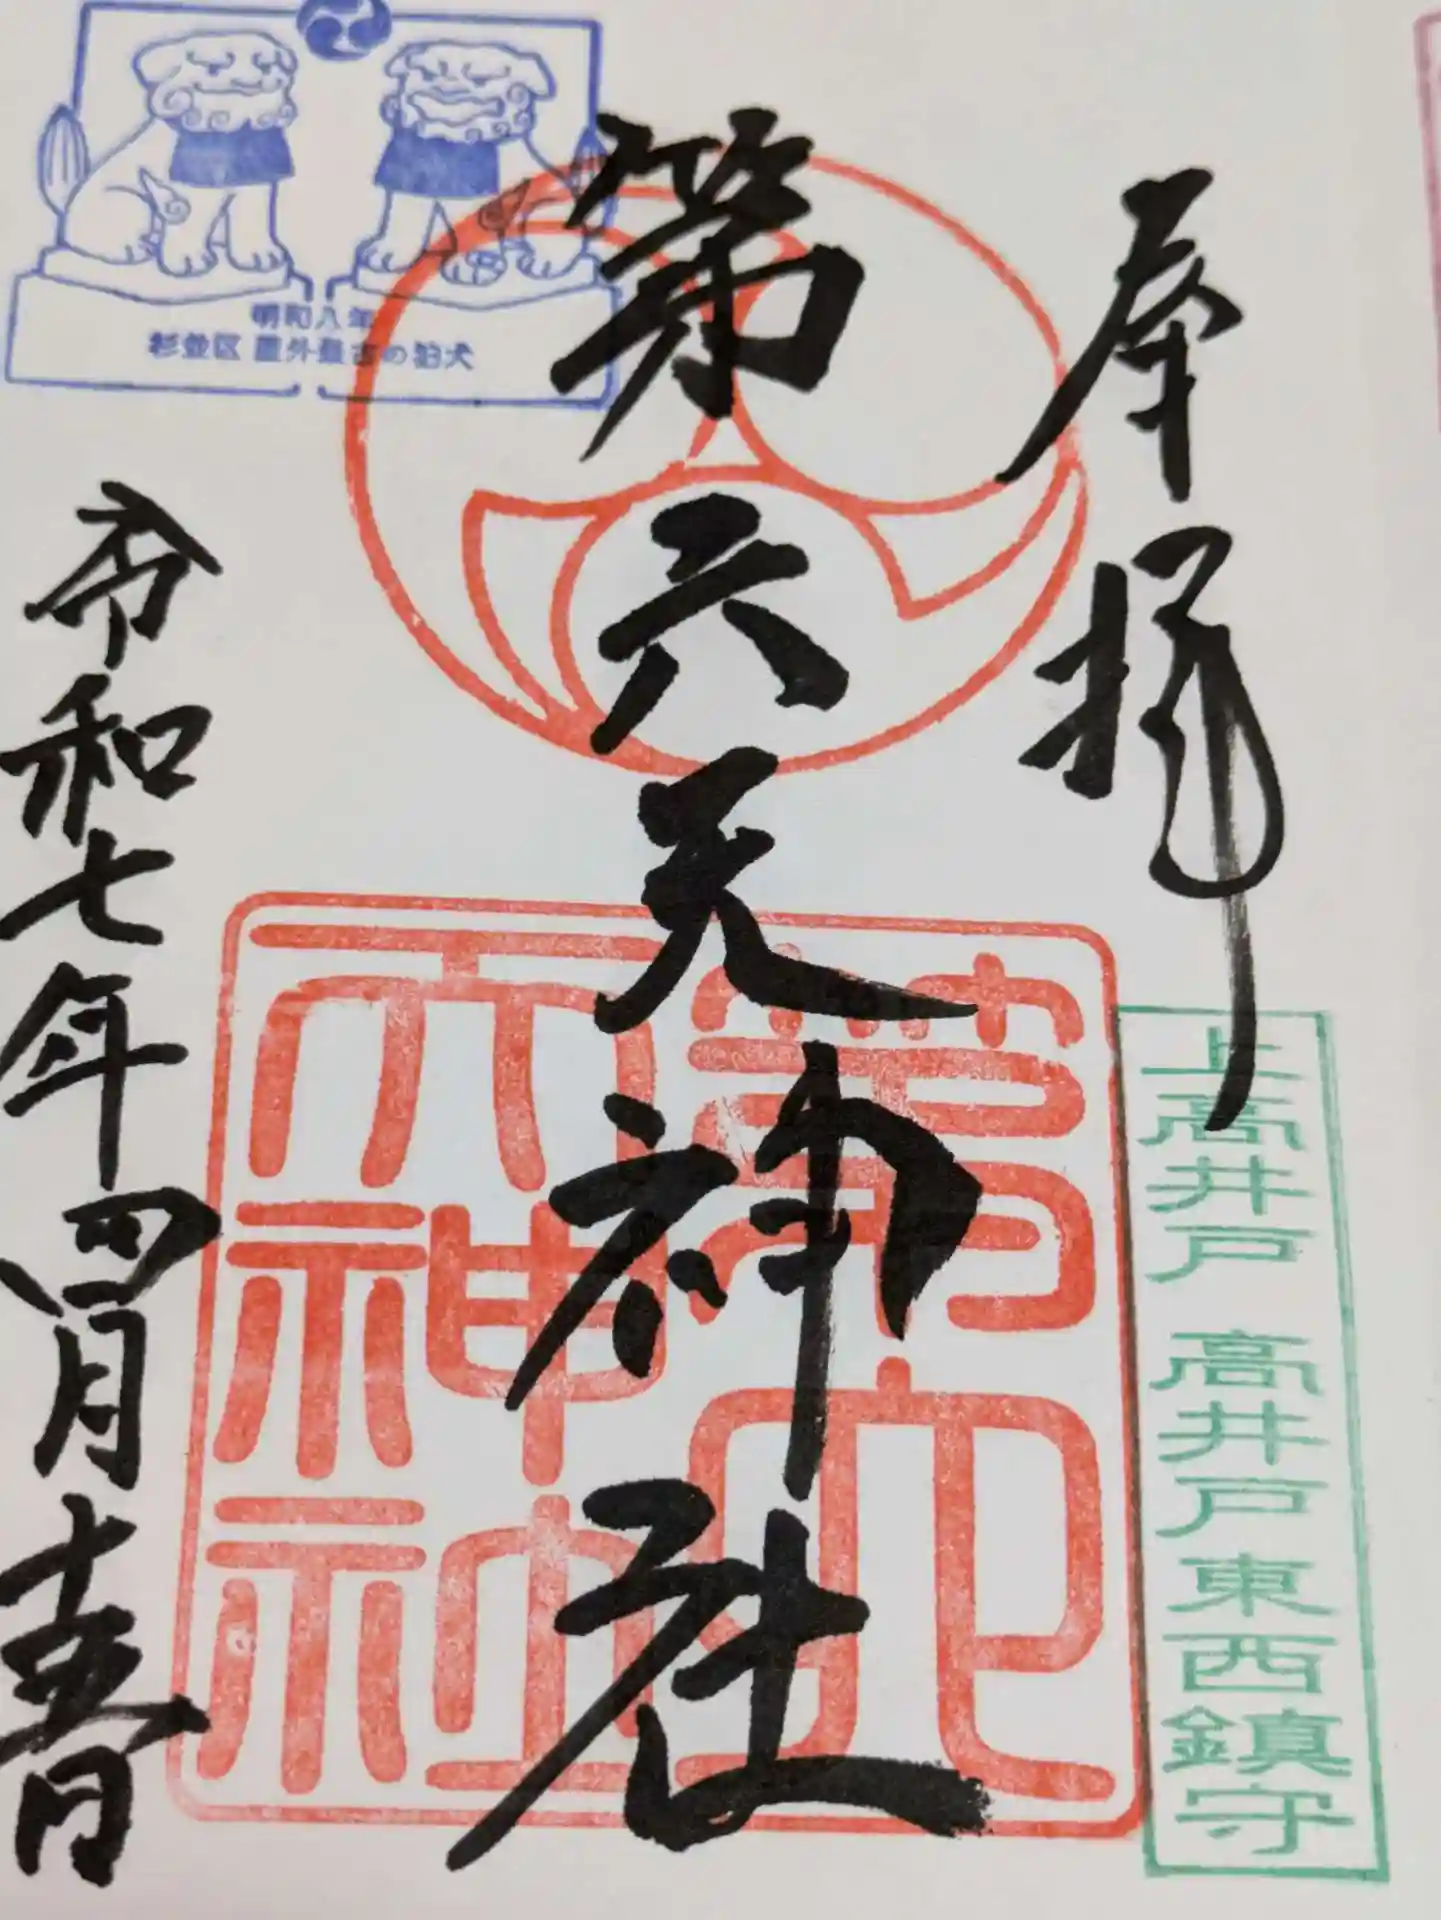 奉拝
上高井戸 高井戸東西鎮守
第六天神社
第六
天神社
明和八年
杉並区 屋外最古の狛犬
令和七年四月十五日